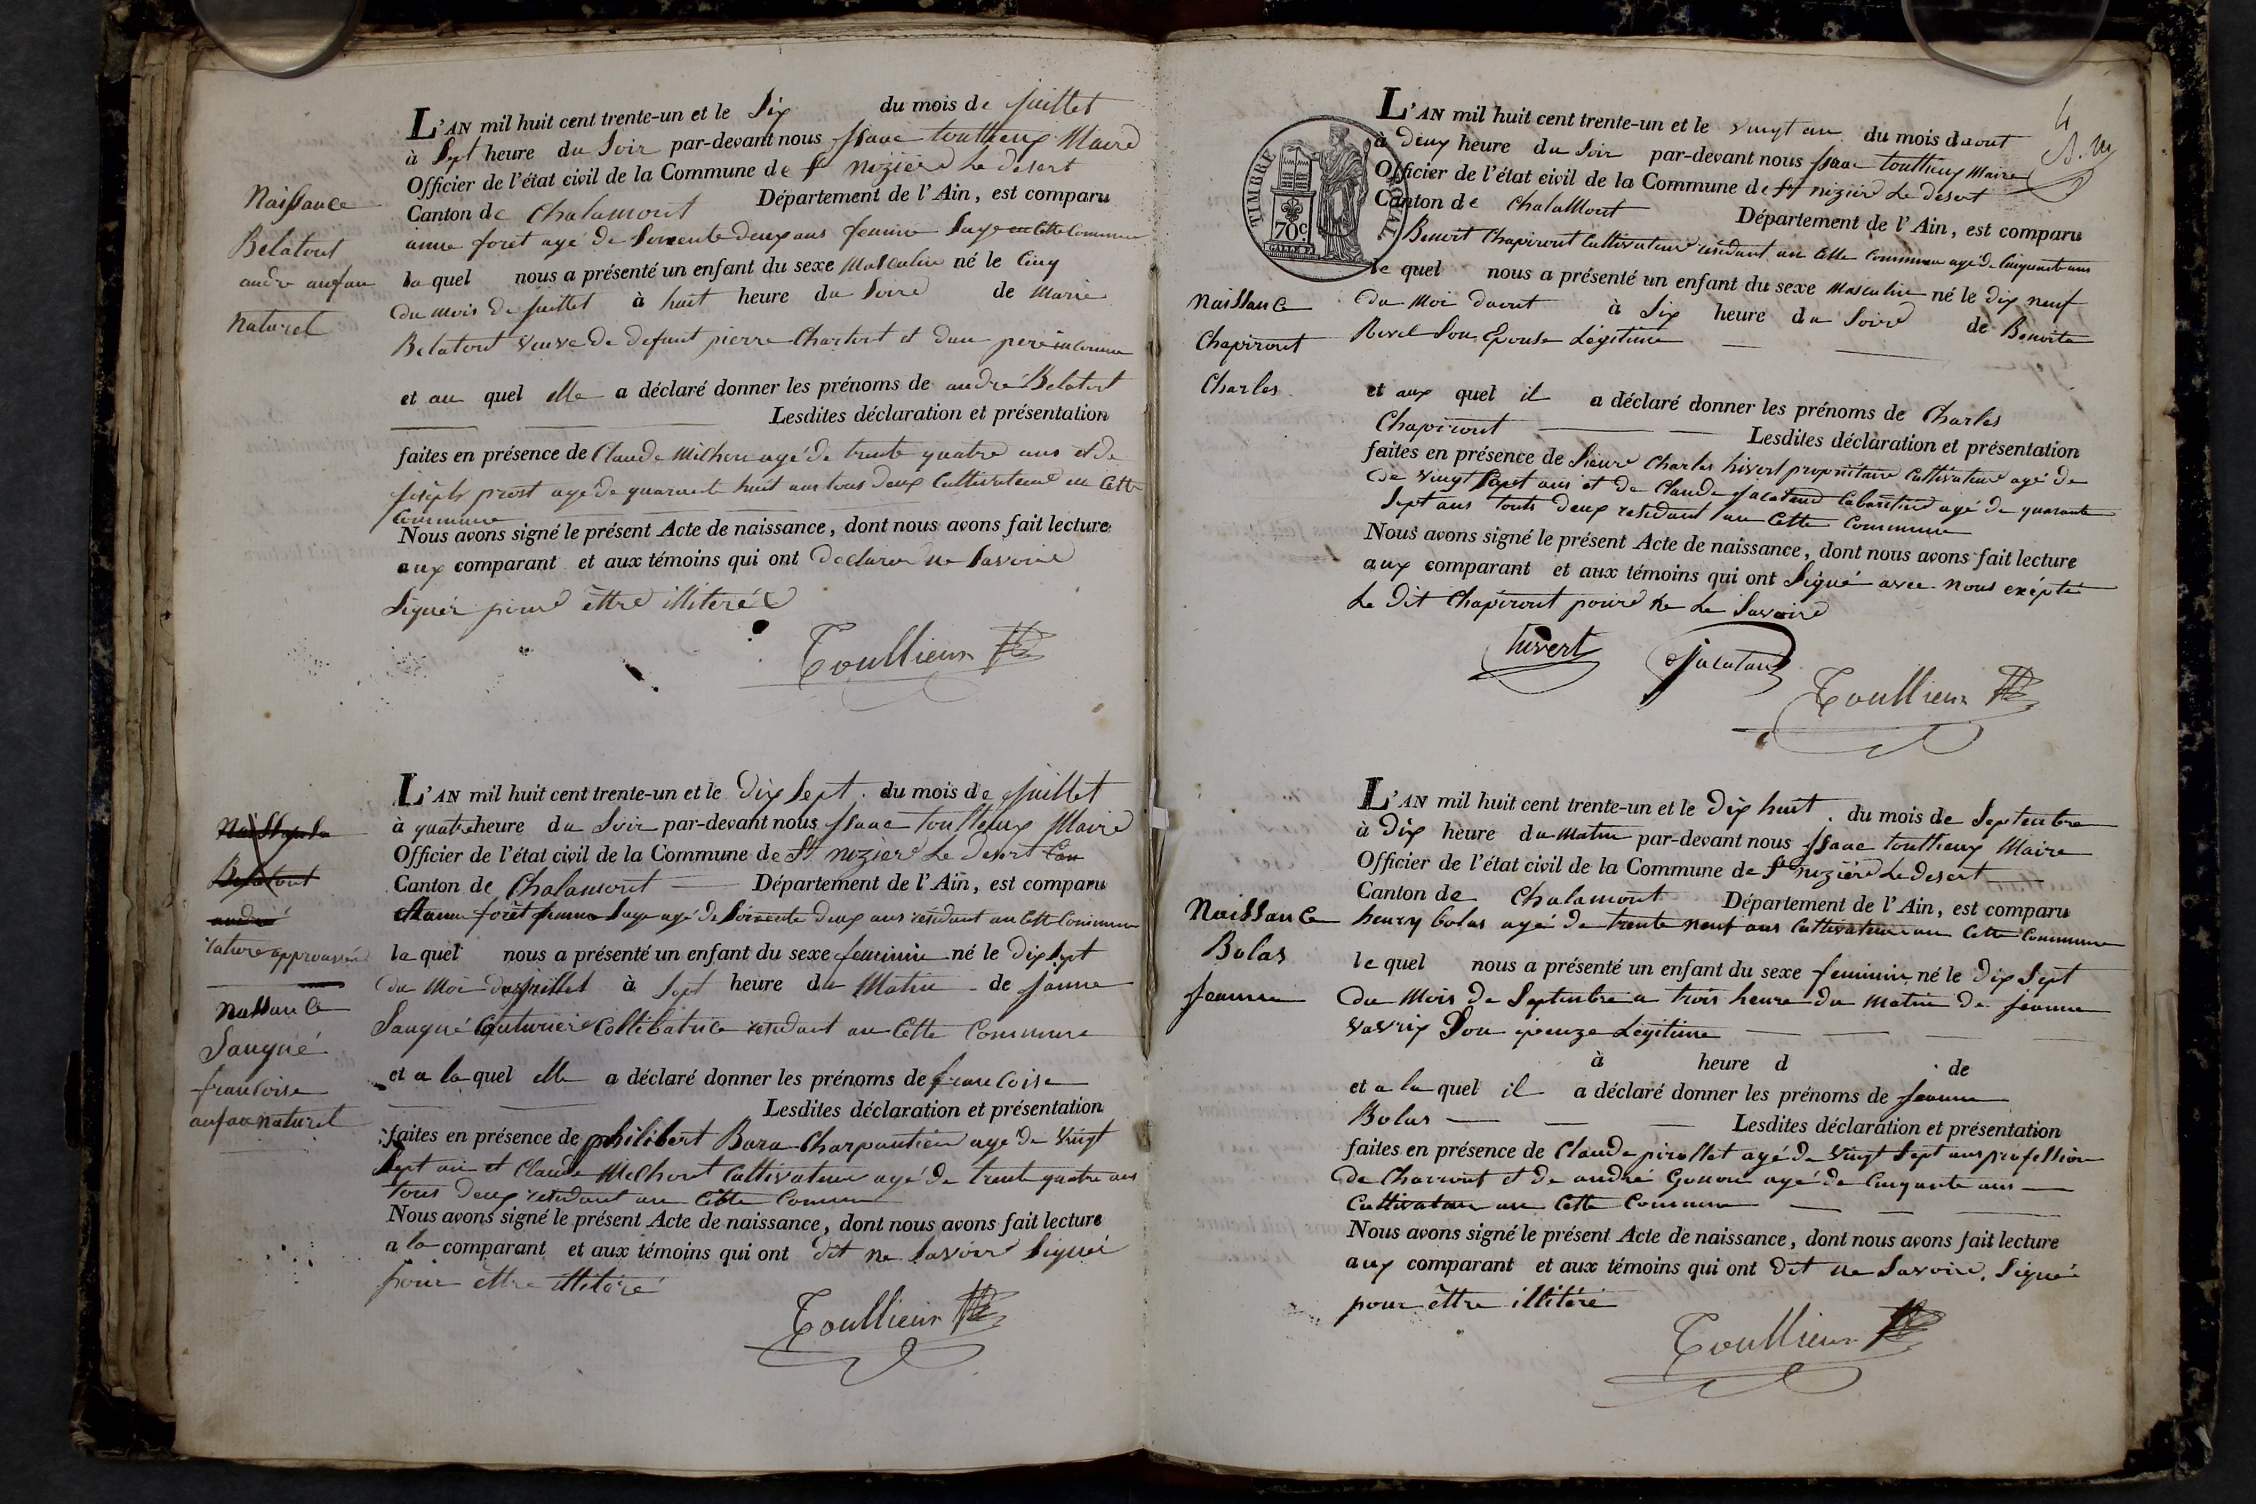 Naissance
Belatout
andre anfan
naturel
L'AN mil huit cent trente-un et le Six du mois de juillet
à Sept heure du Soir par-devant nous Isaac toullieux Maire
Officier de l'état civil de la Commune de St nizier Le desert
Canton de Chalamont Département de l'Ain, est comparu
anne foret agé de Soixente deux ans femme Sage en Cette Commune
la quel nous a présenté un enfant du sexe Masculin né le Cinq
du mois de juillet à huit heure du Soire de Marie
Belatout veuve de defunt pierre Chartout et dun pere inconnu
et au quel elle a déclaré donner les prénoms de andré Belatout
Lesdites déclaration et présentation
faites en présence de Claude Michon agé de trente quatre ans et de
joseph prost agé de quarante huit ans tous deux Cultivateur en Cette
Commune
Nous avons signé le présent Acte de naissance, dont nous avons fait lecture
aux comparant et aux témoins qui ont declaré ne Savoire
Signér pour être illiteré
Toullieux
Naissance
Belatout
andré
rature approuvée
naissance
Saugué
francoise
anfan naturel
L'AN mil huit cent trente-un et le dix Sept du mois de juillet
à quatre heure du Soir par-devant nous Isaac toullieux Maire
Officier de l'état civil de la Commune de St nizier Le desert
Canton de Chalamont Département de l'Ain, est comparu
anne forêt femme Sage agé de Soixente deux ans résidant an Cette Commune
la quel nous a présenté un enfant du sexe feminin né le dix Sept
du Moi de juillet à Sept heure du Matin de jeanne
Saugué Couturiere Colibatrice résidant an Cette Commune
et a la quel elle a déclaré donner les prénoms de francoise
Lesdites déclaration et présentation
faites en présence de philibert Bara Charpantier agé de Vingt
Sept ans et Claude Michont Cultivateur agé de trente quatre ans
tous deux résidant an Cette Commune
Nous avons signé le présent Acte de naissance, dont nous avons fait lecture
a la comparant et aux témoins qui ont dit ne Savoire Signér
pour être illitéré
Toullieux
4
TIMBRE ROYAL
70c
L'AN mil huit cent trente-un et le vingt un du mois daout
à deux heure du Soir par-devant nous Isaac toullieux Maire
Officier de l'état civil de la Commune de St nizier Le desert
Canton de Chalamont Département de l'Ain, est comparu
Benoit Chapiront Cultivateur résidant an Cette Commune agé de Cinquante ans
le quel nous a présenté un enfant du sexe Masculin né le dix neuf
du Moi daout à Six heure du Soire de Benoite
Revel Son Epouse Légitime
Naissance
Chapiront
Charles
et aux quel il a déclaré donner les prénoms de Charles
Chapiront Lesdites déclaration et présentation
faites en présence de Sieur Charles hivert propriétaire Cultivateur agé de
de vingt Sept ans et de Claude Jacatand Cabaretier agé de quarante
Sept ans touts deux résidant an Cette Commune
Nous avons signé le présent Acte de naissance, dont nous avons fait lecture
aux comparant et aux témoins qui ont Signé avec nous exépté
Le dit Chapiront pour ne Le Savoire
huvert Jacatand
Toullieux
L'AN mil huit cent trente-un et le dix huit du mois de Septembre
à dix heure du Matin par-devant nous Isaac toullieux Maire
Officier de l'état civil de la Commune de St nizier Le desert
Canton de Chalamont Département de l'Ain, est comparu
henry bolas agé de trente neuf ans Cultivateur an Cette Commune
le quel nous a présenté un enfant du sexe feminin né le dix Sept
du Mois de Septembre a trois heure du matin de jeanne
vavrix Son épeuze Légitime
Naissance
Bolas
jeanne
à heure d de
et a la quel il a déclaré donner les prénoms de jeanne
Bolas Lesdites déclaration et présentation
faites en présence de Claude pirollet agé de vingt Sept ans profession
de Charront et de andré Gonon agé de Cinquante ans
Cultivateur an Cette Commune
Nous avons signé le présent Acte de naissance, dont nous avons fait lecture
aux comparant et aux témoins qui ont dit ne Savoire Signér
pour être illitéré
Toullieux